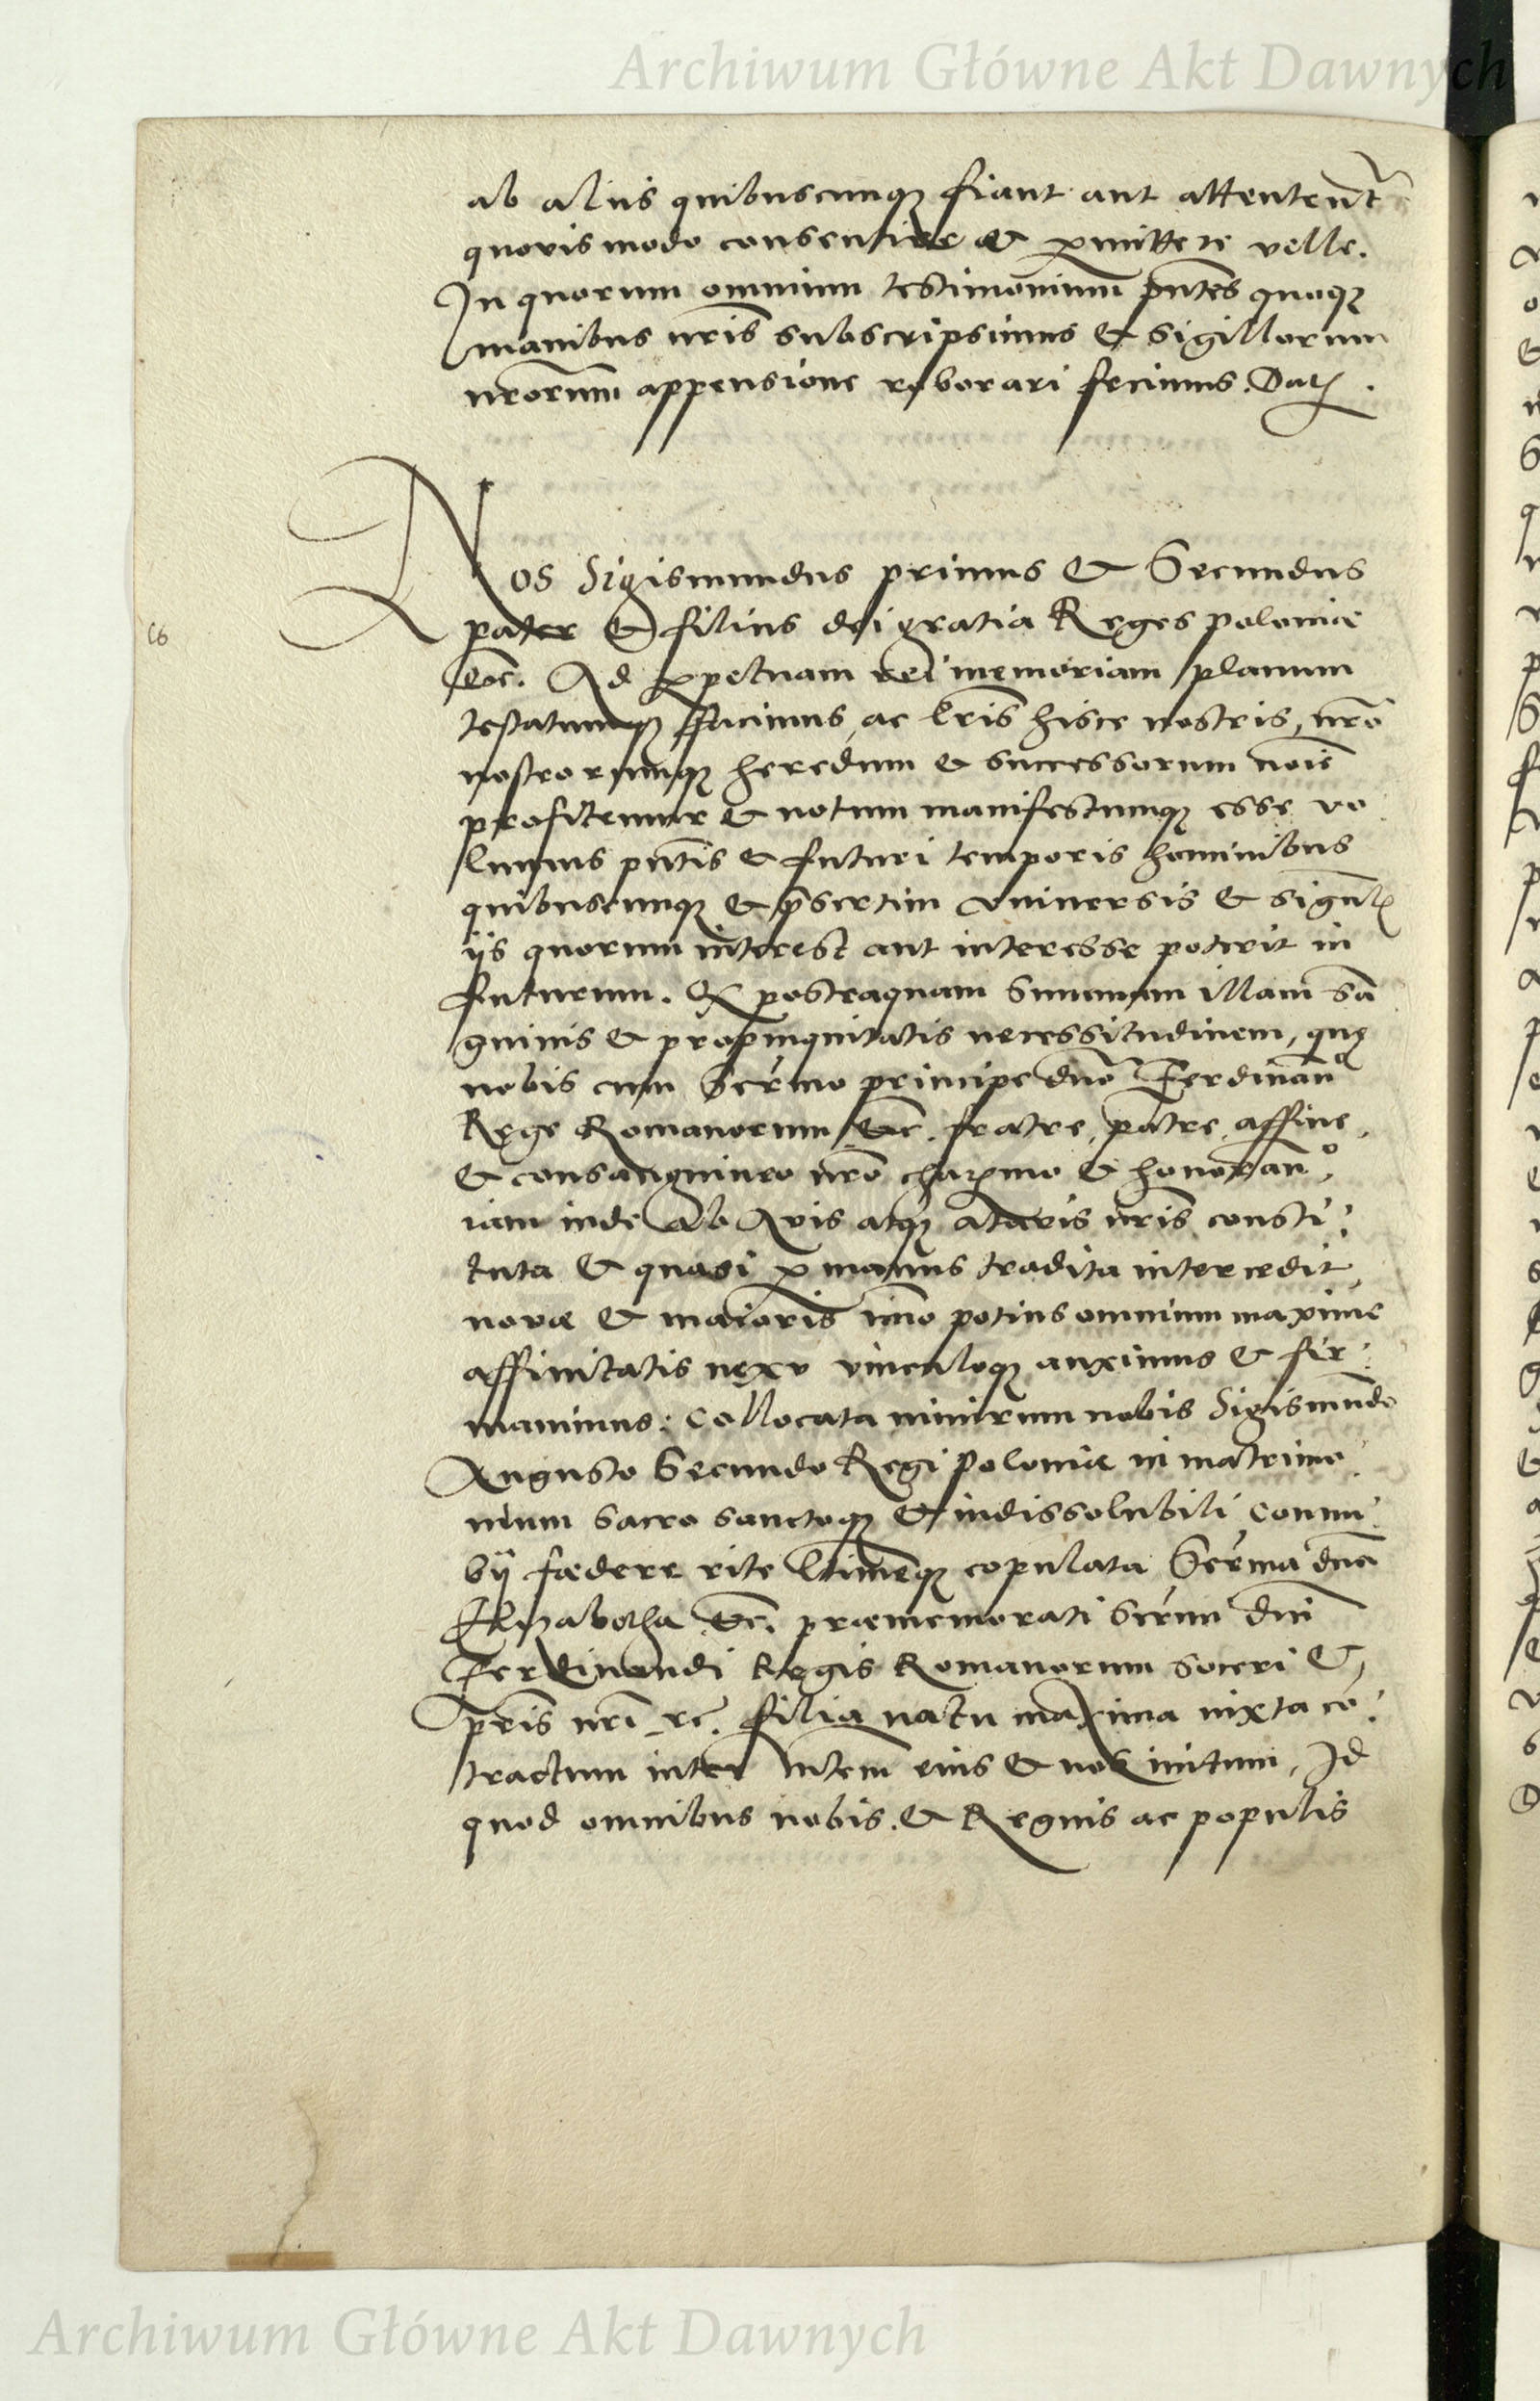 Archiwum Główne Akt Dawnych
ab aliis quibuscunq; fiant aut attentent᷑
quovis modo consentire et p̱mittere velle.
In quorum omnium testimonium pñtes quoq;
manibus nr̃is subscripsimus & sigillorum
nr̃orum appensione roborari fecimus. Dat̃.
Nos Sigismundus primus & Secundus
pater & filius dei gratia Reges poloniæ
etc̃. Ad p̱petuam rei memoriam planum
testatumq; facimus, ac l̃ris hisce nostris, nr̃o
nostrorumq; heredum & successorum no̅i̅e
profitemur & notum manifestumq; esse vo
lumus pñtis & futuri temporis hominibus
quibuscunq; & p̃sertim vniversis & singul̃
ijs quorum interest aut interesse poterit in
futurum. Q̃ posteaquam summam illam sã
guinis & propinquitatis necessitudinem, quę
nobis cum Ser̃mo principe dño Ferdinan͂do
Rege Romanorum etc. fratre, patre, affine,
& consanguineo nr̃o char̃mo & honoran͂º
iam inde ab Avis atq; atavis nr̃is consti:
tuta & quasi p̱ manus tradita intercedit,
novæ & maioris im̃o potius omnium maximæ
affinitatis nexu vinculoq; auximus & fir:
mavimus: Collocata nimirum nobis Sigismũdo
Augusto Secundo Regi Poloniæ in matrimo
nium sacro sanctoq; & indissolubili Connu:
bij fœdere rite l̃timeq; copulata Ser̃ma dña
Elizabetha etc. præmemorati Ser̃mi dñi
Ferdinandi Regis Romanorum soceri &
pr̃is nr̃i etc. filia natu maxima iuxta cõ:
tractum inter Mtem eius & nos initum, Id
quod omnibus nobis & Regnis ac populis
Archiwum Główne Akt Dawnych